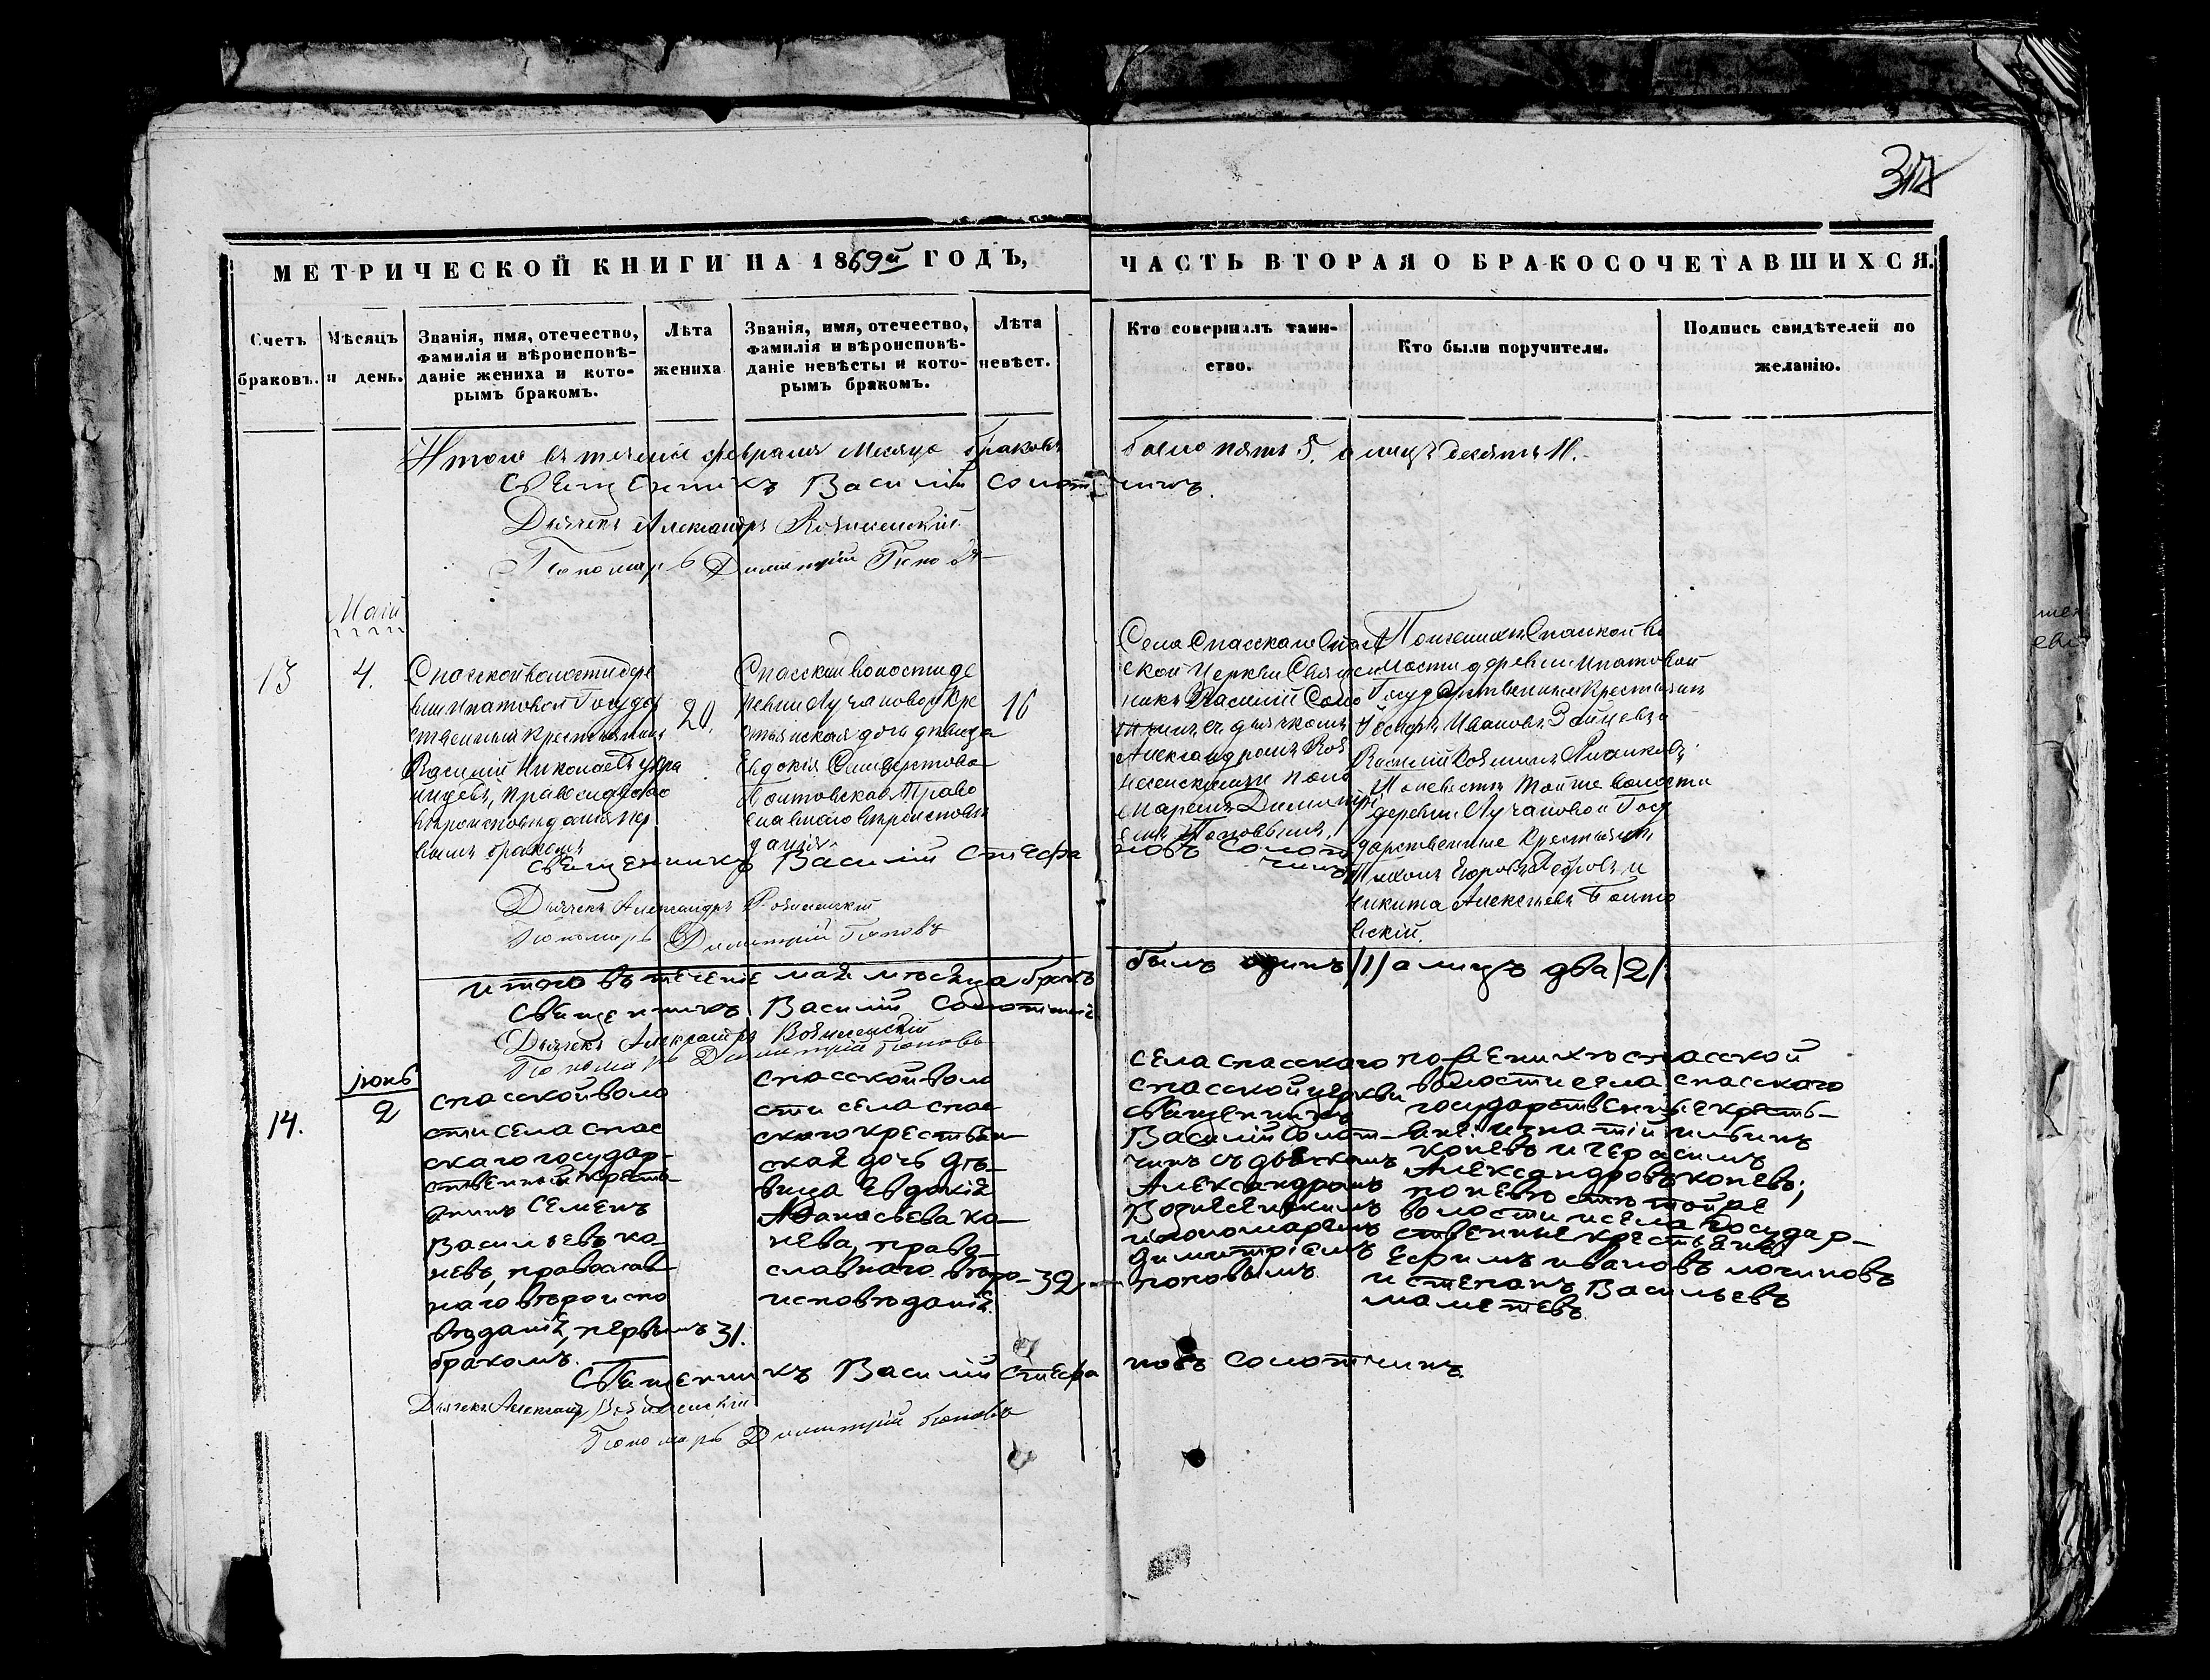 317
МЕТРИЧЕСКОЙ КНИГИ НА 1869й ГОДЪ,
ЧАСТЬ ВТОРАЯ О БРАКОСОЧЕТАВШИХСЯ.
Счетъ
браковъ.
Мѣсяцъ
и день.
Званія, имя, отечество,
фамилія и вѣроисповѣ-
даніе жениха и кото-
рымъ бракомъ.
Лѣта
жениха
Званія, имя, отечество,
фамилія и вѣроисповѣ-
даніе невѣсты и кото-
рымъ бракомъ.
Лѣта
невѣст.
Кто совершалъ таин-
ство.
Кто были поручители.
Подпись свидѣтелей по
желанію.
Итого въ теченіи февраля месяца браковъ было пять 5. а лицъ десять 10.
Священникъ Василій Солотчинъ.
Дьячекъ Александръ Вознесенскій
Пономарь Димитрій Поповъ
Май
13
4.
Спасской волости дере
вни Ипатовой Государ
ственный крестьянинъ
Василій Николаевъ Укра
инцевъ, Православнаго
вѣроисповѣданія пер
вымъ бракомъ
20.
Спасской волости де
ревни Лучановой кре
стьянская дочь девица
Евдокія Сильверстова
Полтовская Право
славнаго вѣроисповѣ
данія
16
Села Спасскаго Спас
ской Церкви Священ
никъ Василій Соло
тчинъ съ дьячкомъ
Александромъ Воз
несенскимъ и поно
маремъ Димитрі
емъ Поповымъ.
По женихѣ Спасской во
лости деревни Ипатовой
Государственные Крестьяне
Іосифъ Ивановъ Зайцевъ и
Василій
По невестѣ той же волости
деревни Лучановой Госу
дарственные Крестьяне
Тихонъ Егоровъ Петровъ и
Никита Алексѣевъ Полто
вскій.
Священникъ Василій Стефановъ Солотчинъ
Дьячекъ Александръ Вознесенскій
Пономарь Димитрій Поповъ
итого въ теченіе мая мѣсяца бракъ былъ одинъ /1/ а лицъ два /2/.
Священникъ Василій Солотчинъ
Дьячекъ Александръ Вознесенскій
Пономарь Димитрій Поповъ
июнь
14.
2
спасской воло
сти села спас
скаго государ-
ственный кресть-
янинъ Семенъ
Васильевъ ко
невъ, православ
наго вѣроиспо
вѣданія, первымъ
бракомъ.
31.
спасской воло
сти села спас
скаго крестьян
ская дочь дѣ-
вица Евдокія
Аѳанасьева ко
нева, право-
славнаго вѣро-
исповѣданія.
32
села спасскаго
спасской церкви
священникъ
Василій Солот-
чинъ съ дьячкомъ
Александромъ
Вознесенскимъ
и пономаремъ
димитріемъ
поповымъ.
по женихѣ спасской
волости села спасскаго
государственные кресть-
яне: игнатій ильинъ
коневъ и герасимъ
Александровъ коневъ;
по невѣстѣ той же
волости и села государ-
ственные крестьяне
Ефимъ ивановъ логиновъ
и степанъ Васильевъ
маметевъ.
Священникъ Василій Стефановъ Солотчинъ
Дьячекъ Александръ Вознесенскій
Пономарь Димитрій Поповъ